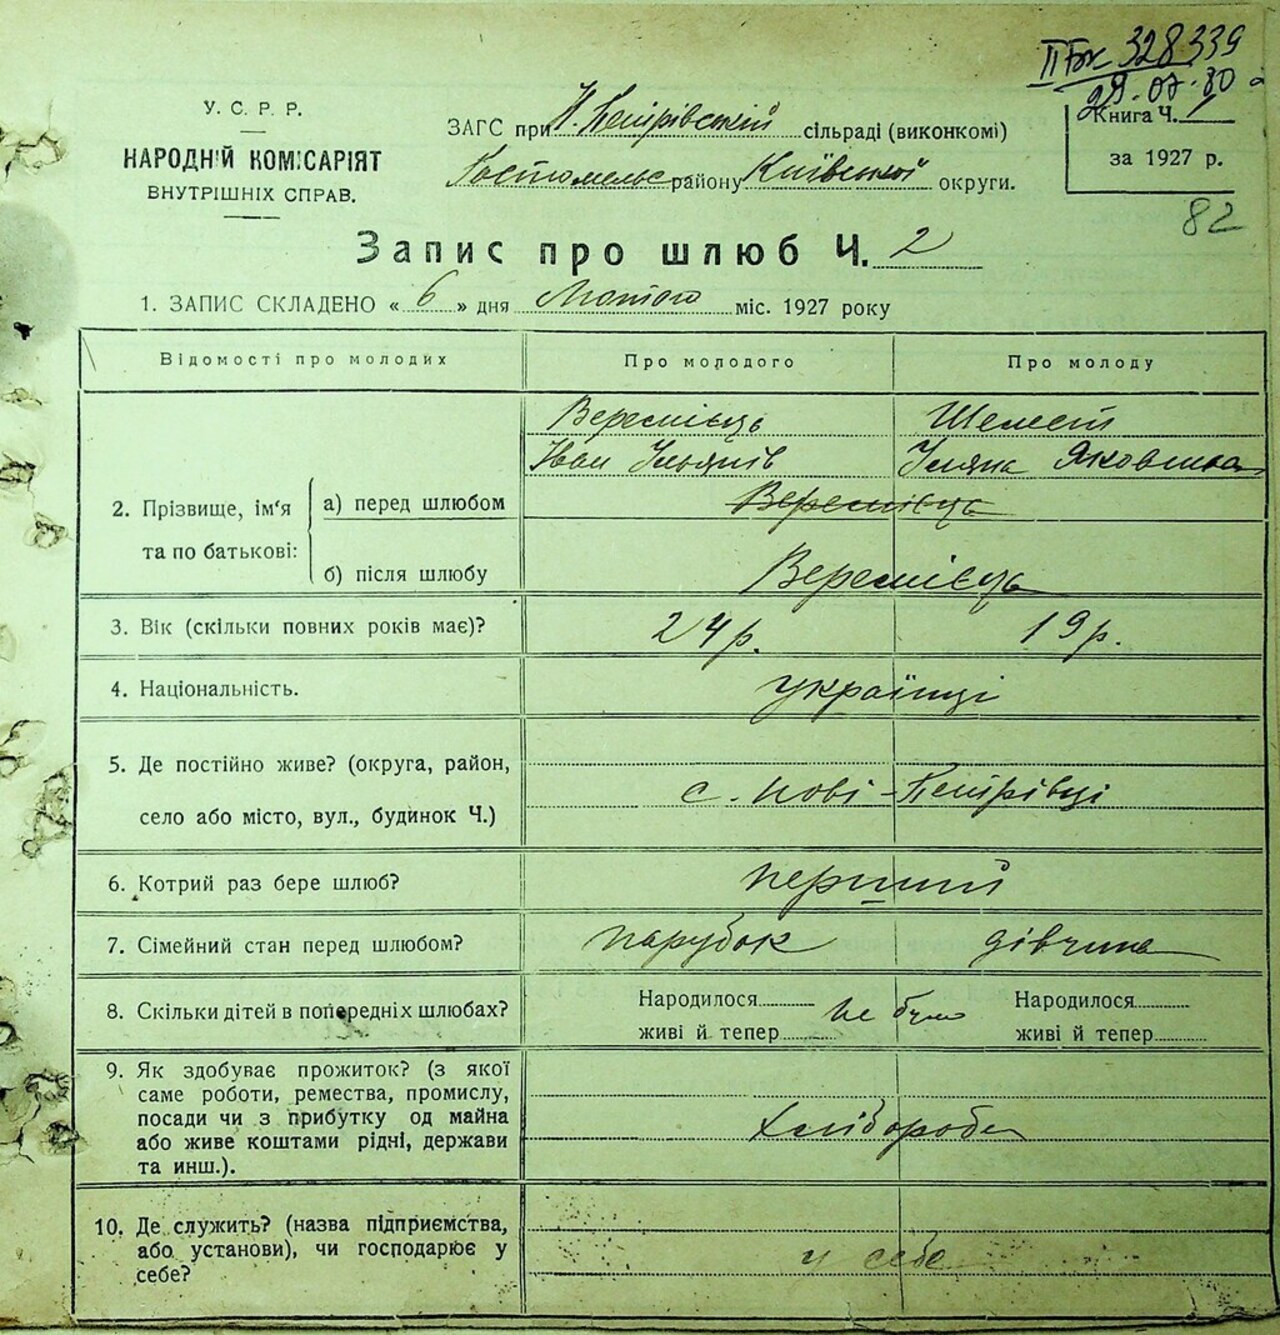 II БК 328339
29.07.80
У. С. Р. Р.
НАРОДНІЙ КОМІСАРІЯТ
ВНУТРІШНІХ СПРАВ.
ЗАГС при Н. Петрівській сільраді (виконкомі)
Гостомельс району Київської округи.
Книга Ч. 1
за 1927 р.
82
Запис про шлюб Ч. 2
1. ЗАПИС СКЛАДЕНО « 6 » дня Лютого міс. 1927 року
Відомості про молодих Про молодого Про молоду
Веремієць Шелест
Іван Ульянів Уляна Яковлівна
2. Прізвище, ім'я та по батькові:
а) перед шлюбом
Веремієць
б) після шлюбу Веремієць
3. Вік (скільки повних років має)? 24 р. 19 р.
4. Національність. українці
5. Де постійно живе? (округа, район,
село або місто, вул., будинок Ч.) с. Нові-Петрівці
6. Котрий раз бере шлюб? перший
7. Сімейний стан перед шлюбом? парубок дівчина
8. Скільки дітей в попередніх шлюбах? Народилося не було Народилося
живі й тепер живі й тепер
9. Як здобуває прожиток? (з якої
саме роботи, ремества, промислу,
посади чи з прибутку од майна
або живе коштами рідні, держави
та инш.). Хлібороби
10. Де служить? (назва підприємства,
або установи), чи господарює у
себе? у себе